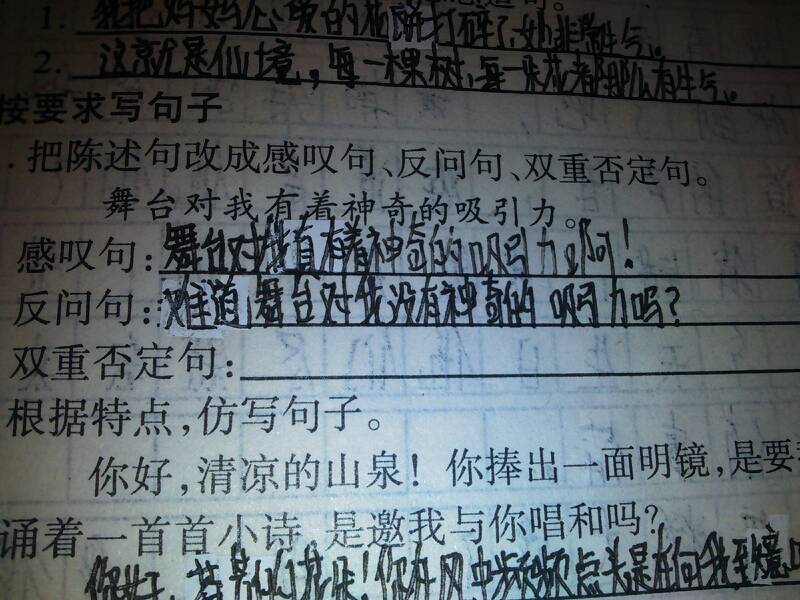 1. 我把妈妈心爱的花瓶打碎了,她非常生气。
2. 这就是仙境,每一棵树、每一朵花都那么有生气。
按要求写句子
.把陈述句改成感叹句、反问句、双重否定句。
舞台对我有着神奇的吸引力。
感叹句:舞台对我真有着神奇的吸引力啊!
反问句:难道舞台对我没有神奇的吸引力吗?
双重否定句:
根据特点,仿写句子。
你好,清凉的山泉!你捧出一面明镜,是要
诵着一首首小诗,是邀我与你唱和吗?
你好,花朵!你在风中频频点头是在向我